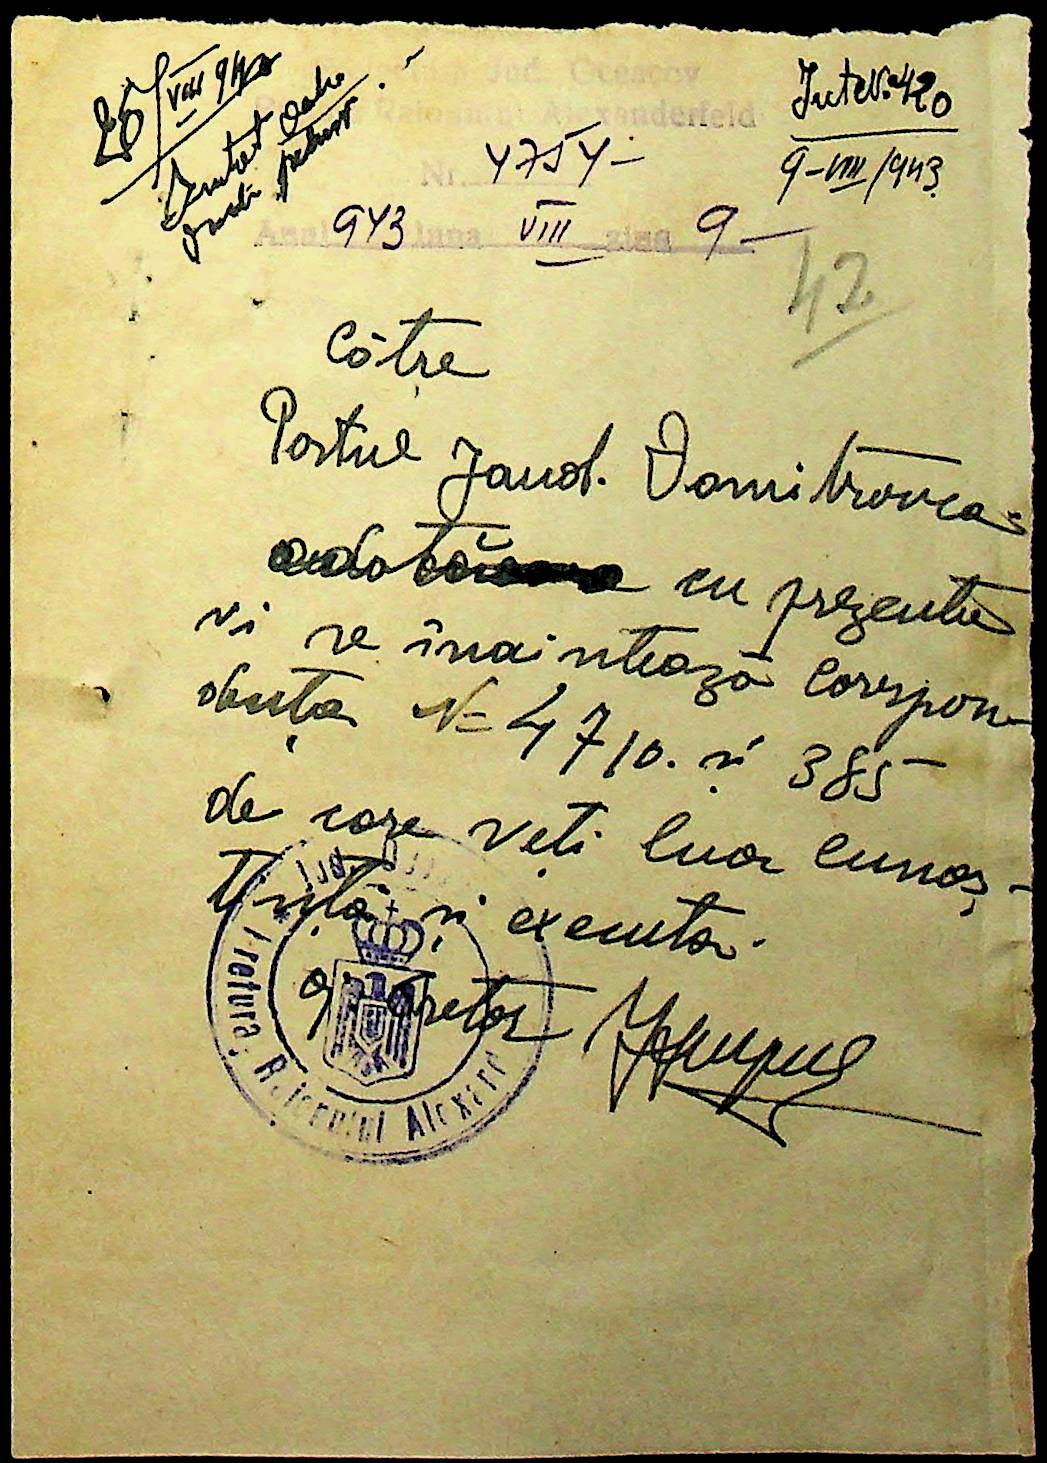 25/VIII 943
Jud. Oceacov
Raionului Alexanderfeld
Nr. 4754
Anul 943 luna VIII ziua 9
Int. No. 420
9-VIII/943
42
Cótre
Postul Jand. Domitrovca
cu prezenta
vi se înaintează corespon-
dența No 4710. și 385
de care veți lua cunoș-
tință și executa.
Pretor
Jud.
Pretura Raionului Alexand